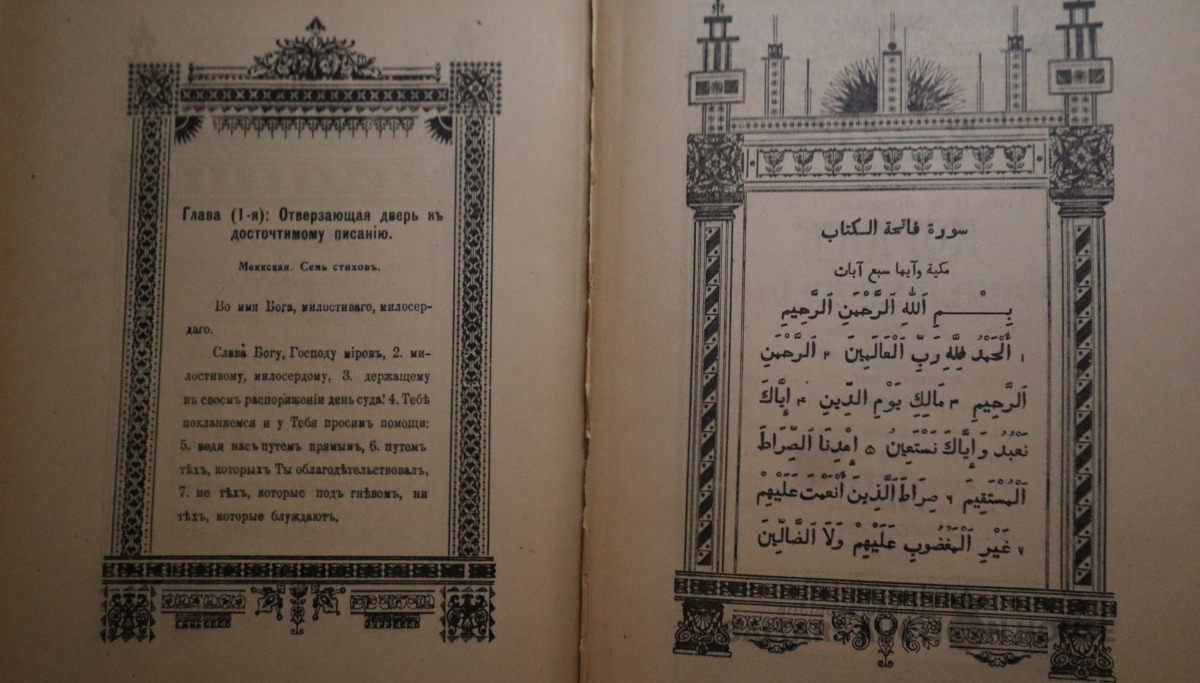 Глава (1-я): Отверзающая дверь къ
досточтимому писанію.
Меккская. Семь стиховъ.
Во имя Бога, милостиваго, милосер-
даго.
Слава Богу, Господу міровъ, 2. ми-
лостивому, милосердому, 3. держащему
въ своемъ распоряженіи день суда! 4. Тебѣ
покланяемся и у Тебя просимъ помощи:
5. веди насъ путемъ прямымъ, 6. путемъ
тѣхъ, которыхъ Ты облагодѣтельствовалъ,
7. не тѣхъ, которые подъ гнѣвомъ, ни
тѣхъ, которые блуждаютъ.
سورة فاتحة الكتاب
مكية وآيها سبع آيات
بِسْمِ اَللّٰهِ اَلرَّحْمٰنِ اَلرَّحِيمِ
١ اَلْحَمْدُ لِلّٰهِ رَبِّ اَلْعَالَمِينَ ٢ اَلرَّحْمٰنِ
اَلرَّحِيمِ ٣ مَالِكِ يَوْمِ الدِّينِ ٤ إِيَّاكَ
نَعْبُدُ وَإِيَّاكَ نَسْتَعِينُ ٥ اِهْدِنَا اَلصِّرَاطَ
اَلْمُسْتَقِيمَ ٦ صِرَاطَ اَلَّذِينَ أَنْعَمْتَ عَلَيْهِمْ
٧ غَيْرِ اَلْمَغْضُوبِ عَلَيْهِمْ وَلَا اَلضَّالِّينَ